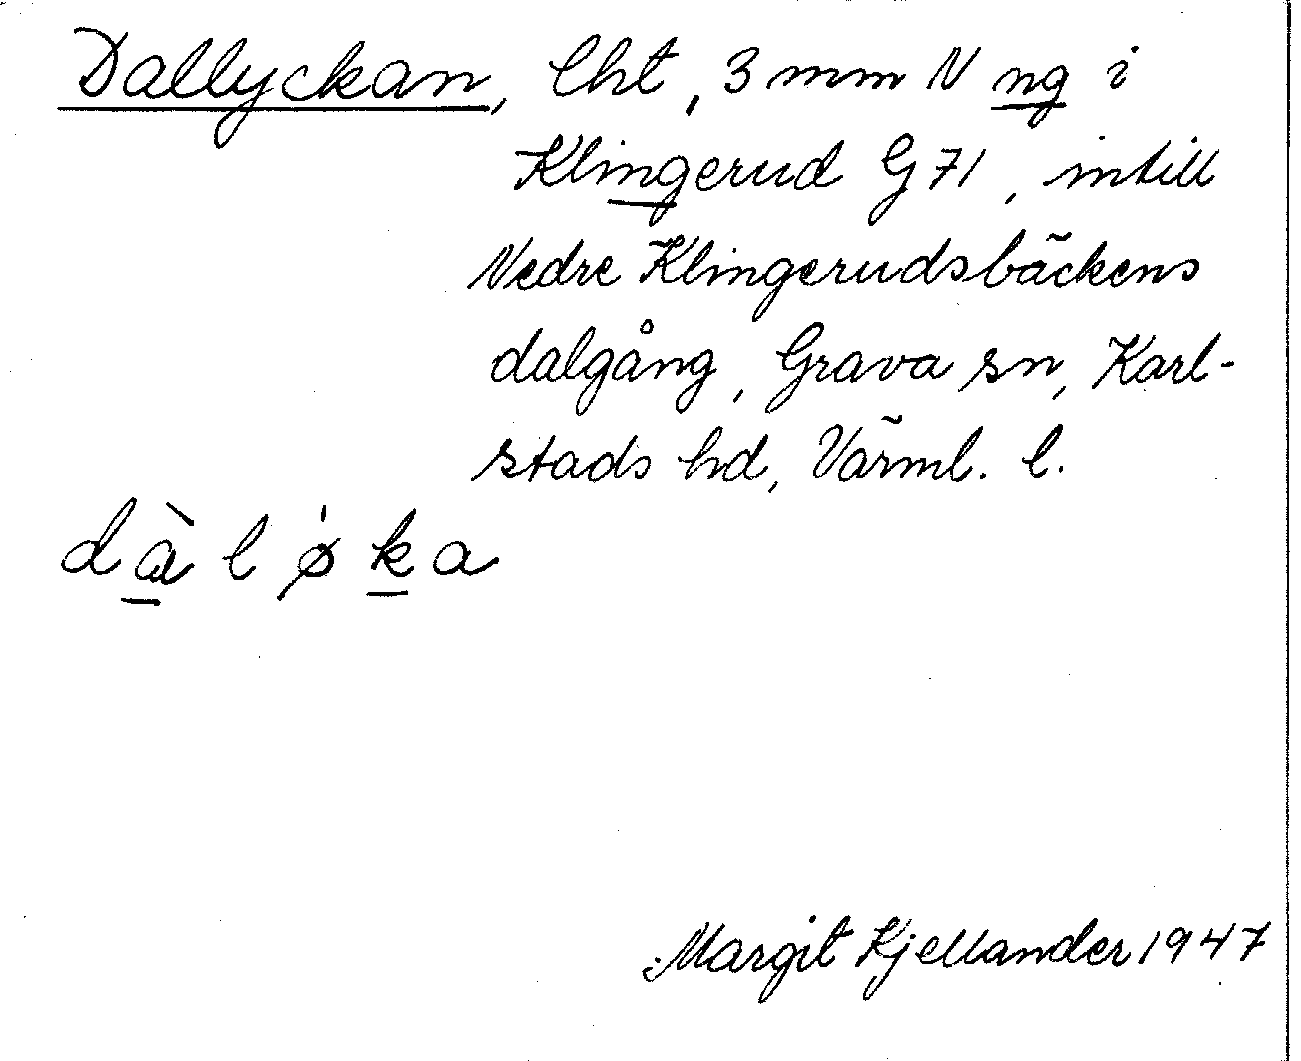 Dallyckan, lht, 3 mm N ng i
Klingerud G 71, intill
Nedre Klingerudsbäckens
dalgång, Grava sn, Karl-
stads hd, Värml. l.
dàløka
Margit Kjellander 1947